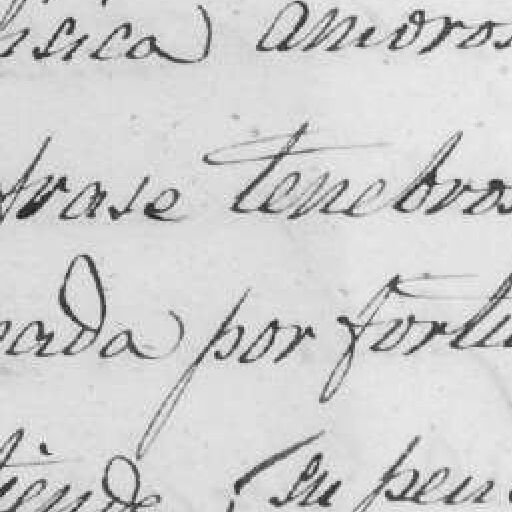 física amoros
frase tenebros
nada por fortu
tiende, su pen